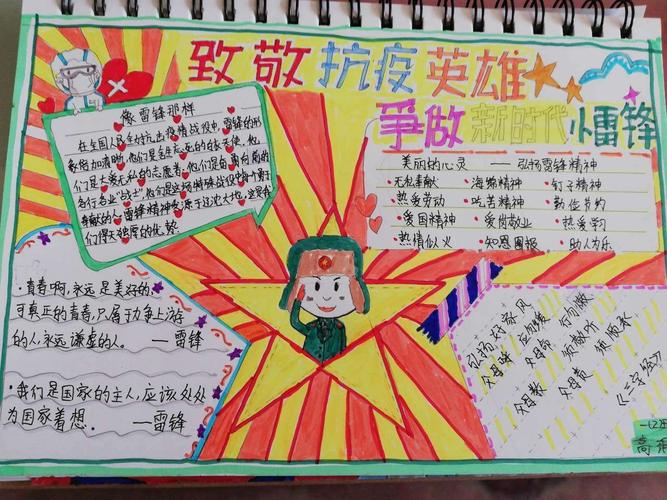 致敬抗疫英雄
争做新时代小雷锋
像雷锋那样
在全国人民全力抗击疫情战役中，雷锋的形
象愈加清晰。他们是舍生忘死的白衣天使，他
们是大爱无私的志愿者，他们是奔向前的
各行各业"战士"，他们是这场
奉献的人。雷锋精神发源于这沈大地，这是我
们得天独厚的优势
美丽的心灵——弘扬雷锋精神
·无私奉献 ·海绵精神 ·钉子精神
·热爱劳动 ·吃苦精神 ·勤俭节约
·爱国精神 ·爱岗敬业 ·热爱学习
·热情似火 ·知恩图报 ·助人为乐
·青春啊，永远是美好的，
可真正的青春，只属于力争上游
的人，永远谦虚的人。 —雷锋
·我们是国家的主人，应该处处
为国家着想。 —雷锋
弘扬好家风
父母呼 应勿缓
父母命 行勿懒
父母教 须敬听
父母责 须顺承
《三字经》